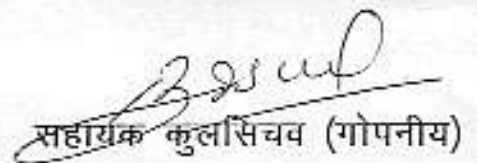 सहायक कुलसिचव (गोपनीय)